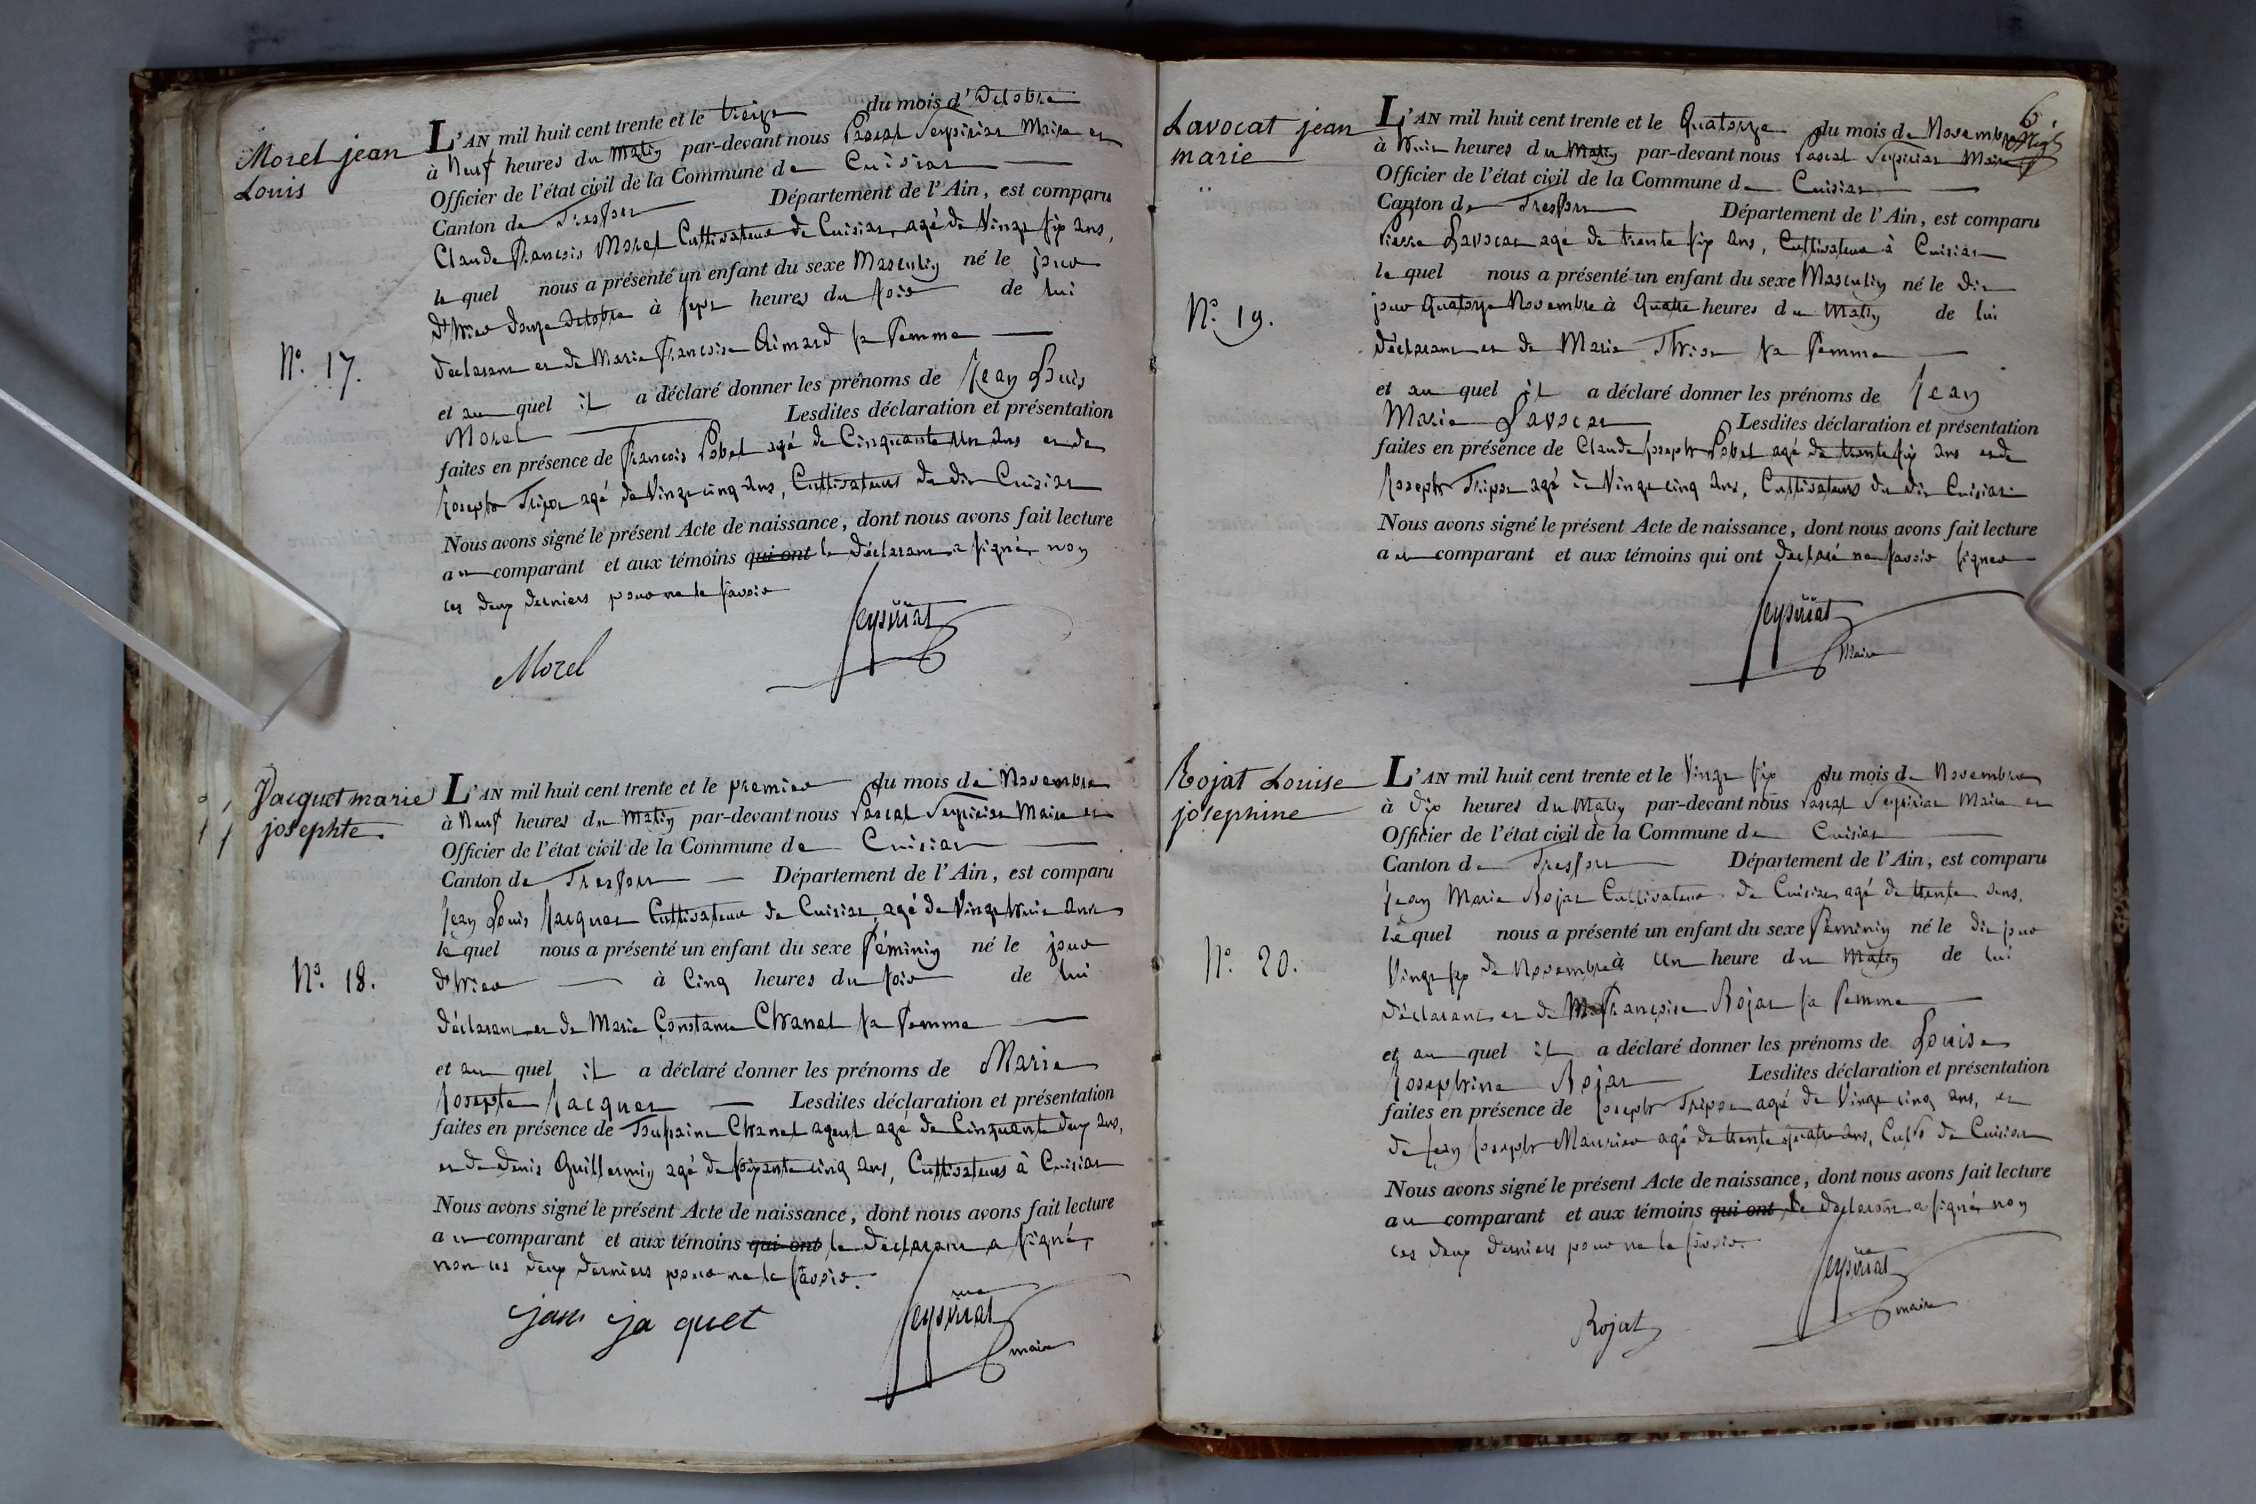 Morel jean
Louis
N.° 17.
L'AN mil huit cent trente et le treize du mois d'Octobre
à Neuf heures du Matin par-devant nous Pascal Seyssiriat Maire et
Officier de l'état civil de la Commune de Cuisiat
Canton de Treffort Département de l'Ain, est comparu
Claude François Morel Cultivateur de Cuisiat, agé de Vingt six ans,
le quel nous a présenté un enfant du sexe Masculin né le jour
d'hier douze Octobre à sept heures du soir de lui
déclarant et de Marie Françoise Aimard sa femme
et au quel il a déclaré donner les prénoms de Jean Louis
Morel Lesdites déclaration et présentation
faites en présence de François Pobel agé de Cinquante un ans et de
Joseph Tripoz agé de Vingt cinq ans, Cultivateurs du dit Cuisiat
Nous avons signé le présent Acte de naissance, dont nous avons fait lecture
au comparant et aux témoins qui ont le déclarant a signé, non
ces deux derniers pour ne le savoir
Morel
Jacquet marie
josephte.
N.° 18.
L'AN mil huit cent trente et le premier du mois de Novembre
à Neuf heures du Matin par-devant nous Pascal Seyssiriat Maire et
Officier de l'état civil de la Commune de Cuisiat
Canton de Treffort Département de l'Ain, est comparu
Jean Louis Jacquet Cultivateur de Cuisiat, agé de Vingt huit ans
le quel nous a présenté un enfant du sexe Féminin né le jour
d'hier à Cinq heures du soir de lui
déclarant et de Marie Constance Chanel sa femme
et au quel il a déclaré donner les prénoms de Marie
Josephte Jacquet Lesdites déclaration et présentation
faites en présence de Toussaint Chanel ayeul agé de Cinquante deux ans,
et de Denis Guillermin agé de soixante cinq ans, Cultivateurs à Cuisiat
Nous avons signé le présent Acte de naissance, dont nous avons fait lecture
au comparant et aux témoins qui ont le déclarant a signé,
non ces deux derniers pour ne le savoir.
jaquet
maire
6
Lavocat jean
marie
N.° 19.
L'AN mil huit cent trente et le Quatorze du mois de Novembre
à huit heures du Matin par-devant nous Pascal Seyssiriat Maire
Officier de l'état civil de la Commune de Cuisiat
Canton de Treffort Département de l'Ain, est comparu
Pierre Lavocat agé de trente six ans, Cultivateur à Cuisiat
le quel nous a présenté un enfant du sexe Masculin né le dit
jour quatorze Novembre à quatre heures du Matin de lui
déclarant et de Marie sa femme
et au quel il a déclaré donner les prénoms de Jean
Marie Lavocat Lesdites déclaration et présentation
faites en présence de Claude Joseph Pobel agé de trente six ans et de
Joseph Tripoz agé de Vingt cinq ans, Cultivateurs du dit Cuisiat
Nous avons signé le présent Acte de naissance, dont nous avons fait lecture
au comparant et aux témoins qui ont déclaré ne savoir signer
Maire
Rojat Louise
josephine
N.° 20.
L'AN mil huit cent trente et le Vingt six du mois de Novembre
à dix heures du Matin par-devant nous Pascal Seyssiriat Maire et
Officier de l'état civil de la Commune de Cuisiat
Canton de Treffort Département de l'Ain, est comparu
Jean Marie Rojat Cultivateur de Cuisiat agé de trente ans,
le quel nous a présenté un enfant du sexe Féminin né le dit jour
Vingt six de Novembre à Un heure du Matin de lui
déclarant et de Françoise Rojat sa femme
et au quel il a déclaré donner les prénoms de Louise
Josephine Rojat Lesdites déclaration et présentation
faites en présence de Joseph Tripoz agé de Vingt cinq ans, et
de Jean Joseph Maurier agé de trente quatre ans, Cult.rs de Cuisiat
Nous avons signé le présent Acte de naissance, dont nous avons fait lecture
au comparant et aux témoins qui ont le déclarant a signé, non
ces deux derniers pour ne le savoir.
Rojat
maire